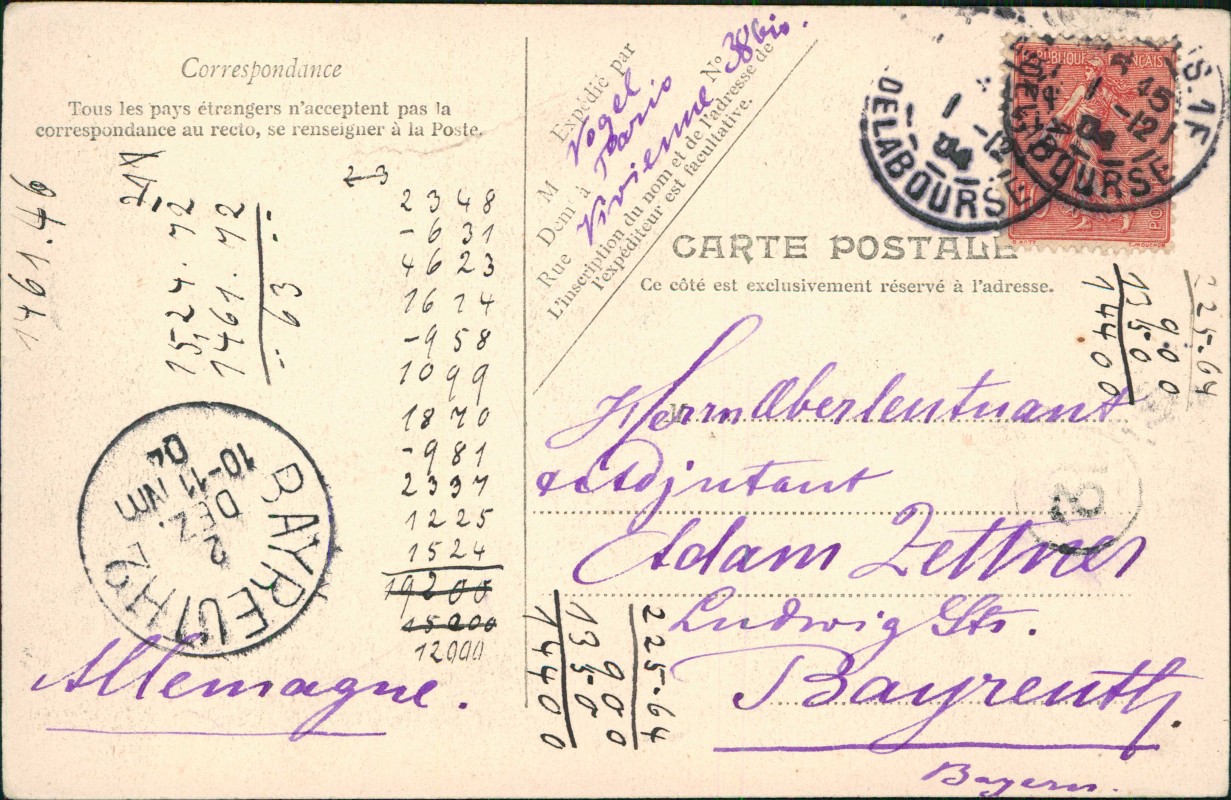 Correspondance
Tous les pays étrangers n'acceptent pas la
correspondance au recto, se renseigner à la Poste.
1461.46
1524.72
1461.72
63
23
2348
-631
4623
1614
-958
1099
1870
-981
2397
1225
1524
19200
15200
12000
BAYREUTH 2
2
DEZ.
10-11 NM
04
Allemagne.
Expédié par
M Vogel
Demt à Paris
Rue Vivienne No 38 bis.
L'inscription du nom et de l'adresse de
l'expéditeur est facultative.
RÉPUBLIQUE FRANÇAISE
DE LA BOURSE
1 -12
04
CARTE POSTALE
Ce côté est exclusivement réservé à l'adresse.
Herrn Oberleutnant
& Adjutant
Adam Zettner
Ludwig Str.
Bayreuth.
Bayern.
225-64
900
1350
14400
225-64
900
1350
14400